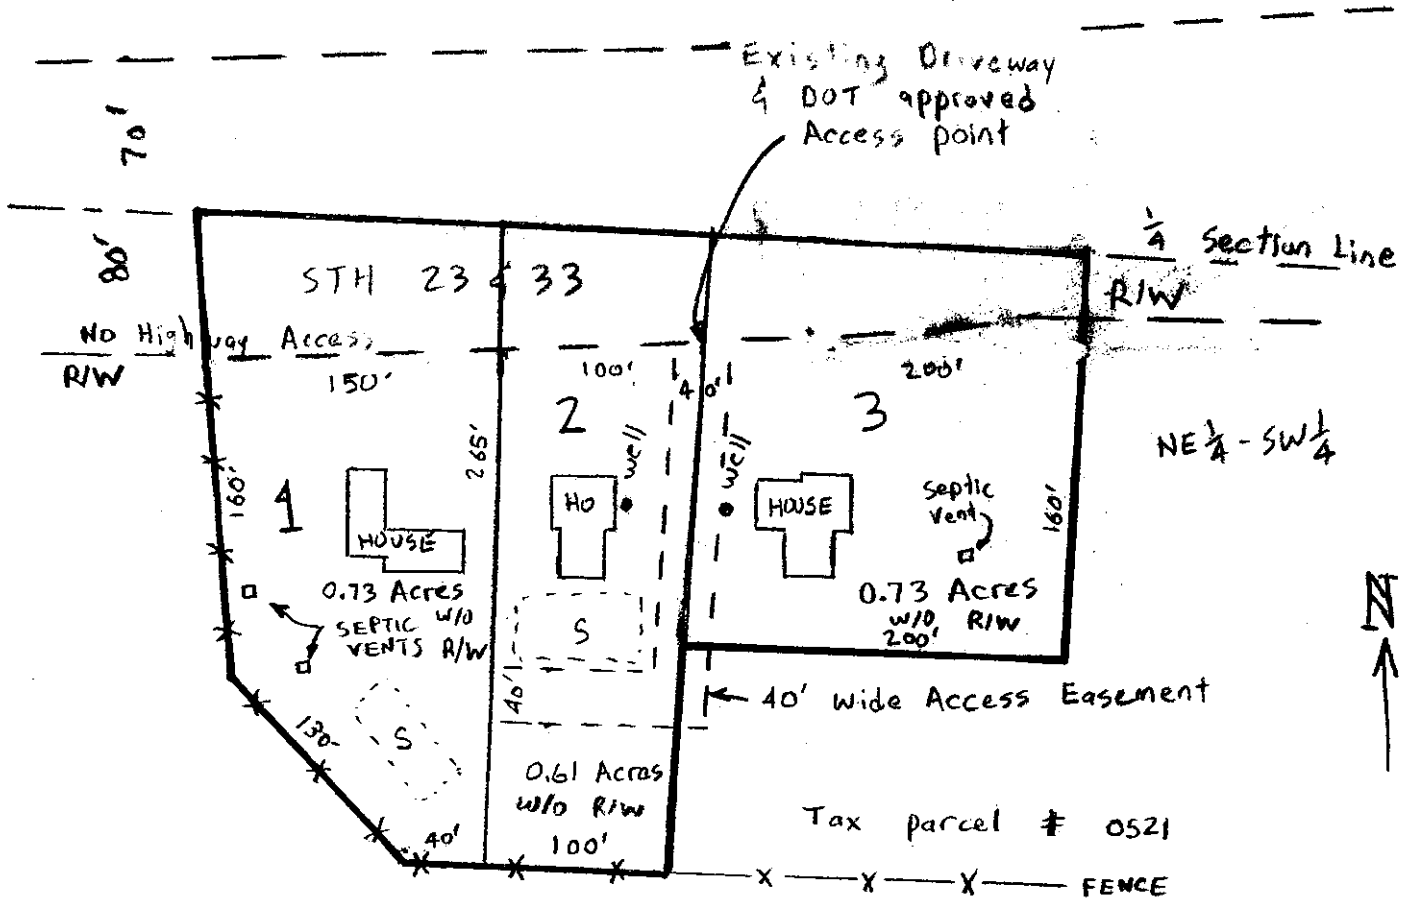 Existing Driveway
& DOT approved
Access point
70'
80'
1/4 Section Line
R/W
STH 23 & 33
No Highway Access
R/W
150'
100'
40'
200'
NE 1/4 - SW 1/4
1
2
3
160'
265'
well
well
HOUSE
HO
HOUSE
septic
vent
160'
0.73 Acres
w/o
R/W
SEPTIC
VENTS
S
0.73 Acres
w/o R/W
200'
N
40'
40' wide Access Easement
130'
S
0.61 Acres
w/o R/W
40'
100'
Tax parcel # 0521
FENCE